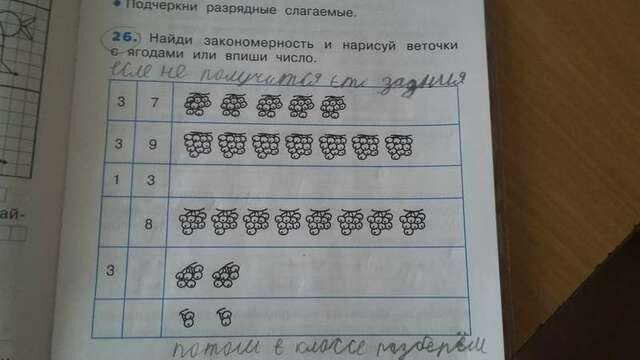 ай-
• Подчеркни разрядные слагаемые.
26. Найди закономерность и нарисуй веточки
с ягодами или впиши число.
не получится эти задания
3 7
3 9
1 3
8
3
потом в классе разберём